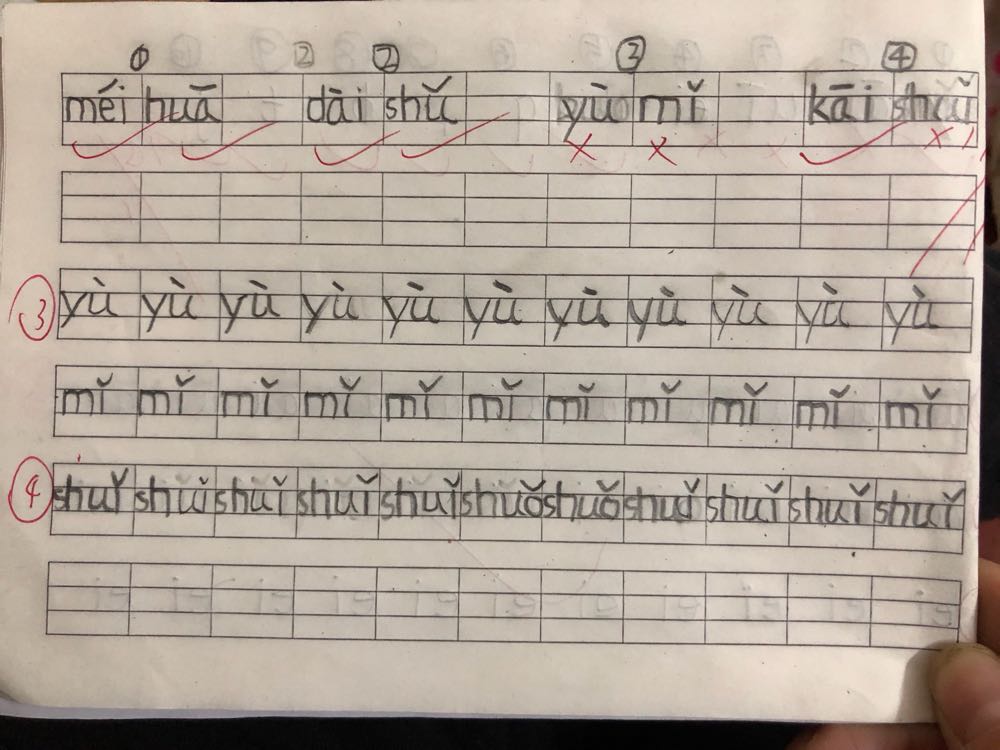 ① ② ② ③ ④
méi huā dài shǔ yù mǐ kāi shuǐ
③ yù yù yù yù yù yù yù yù yù yù yù
mǐ mǐ mǐ mǐ mǐ mǐ mǐ mǐ mǐ mǐ mǐ
④ shuǐ shuǐ shuǐ shuǐ shuǐ shuǒ shuǒ shuǐ shuǐ shuǐ